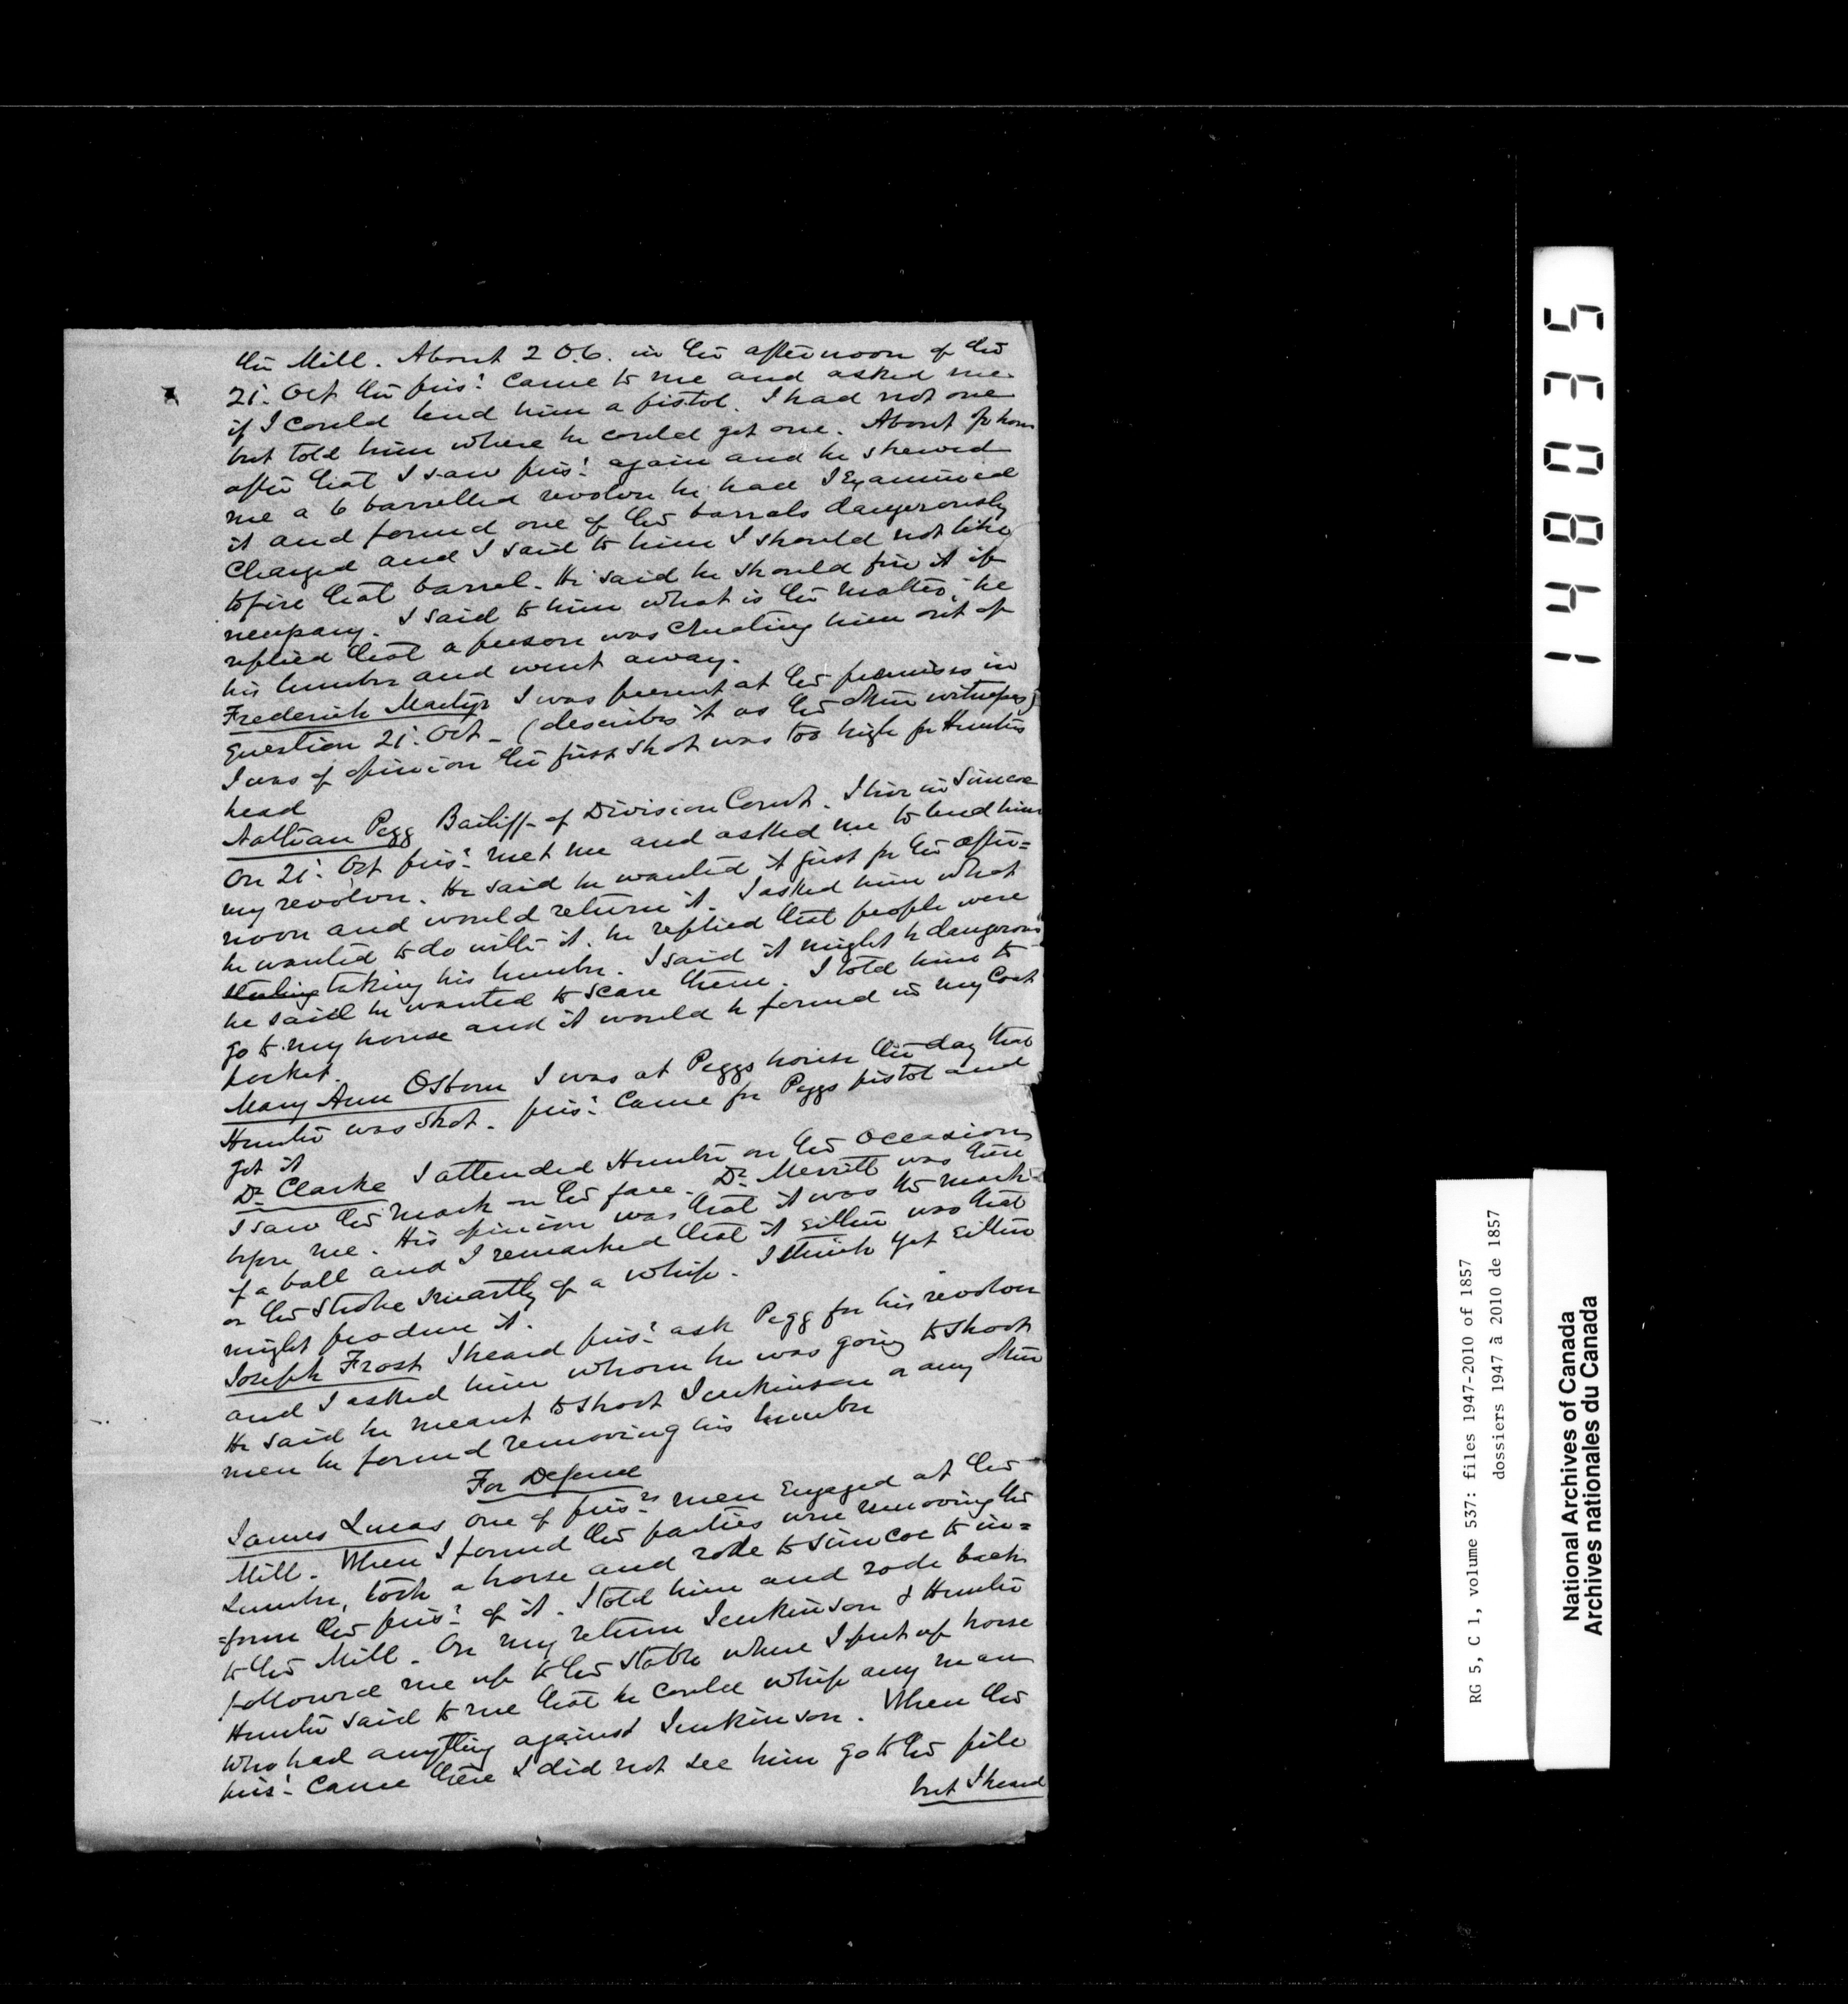 the Mill. About 2 O.C. in the afternoon of the
21st Oct the pris.r came to me and asked me
if I could lend him a pistol. I had not one
but told him where he could get one. About ½ hour
after that I saw pris.r again and he shewed
me a 6 barrelled revolver he had I Examined
it and found one of the barrels dangerously
Charged and I said to him I should not like
to fire that barrel. He said he should fire it if
necessary. I said to him what is the matter, he
replied that a person was cheating him out of
his lumber and went away.
Frederick Martyr I was present at the premises in
question 21st Oct - (describes it as the other witnesses)
I was of opinion the first shot was too high for Hunter's
head
Nathan Pegg Bailiff of Division Court. I live in Simcoe
On 21st Oct pris.r met me and asked me to lend him
my revolver. He said he wanted it just for the after=
noon and would return it. I asked him what
he wanted to do with it. he replied that people were
stealing taking his lumber. I said it might be dangerous
he said he wanted to scare them. I told him to
go to my house and it would be found in my Coat
pocket.
Mary Ann Osborn I was at Peggs house the day that
Hunter was shot. pris.r Came for Peggs pistol and
got it
Dr Clarke I attended Hunter on the occasion
I saw the mark on the face. Dr Merritt was there
before me. His opinion was that it was the mark
of a ball and I remarked that it either was that
or the stroke smartly of a whip. I think yet either
might produce it.
Joseph Frost I heard pris.r ask Pegg for his revolver
and I asked him whom he was going to shoot
He said he meant to shoot Jenkinson or any other
men he found removing his lumber
For Defence
James Lucas one of pris.rs men Engaged at the
Mill. When I found the parties were removing the
Lumber, took a horse and rode to Simcoe to in=
=form the pris.r of it. I told him and rode back
to the Mill. On my return Jenkinson & Hunter
followed me up to the stable where I put up horse
Hunter said to me that he could whip any man
who had anything against Jenkinson. When the
pris.r Came there I did not see him go to the pile
but I heard
148035
RG 5, C 1, volume 537: files 1947-2010 of 1857
dossiers 1947 à 2010 de 1857
National Archives of Canada
Archives nationales du Canada